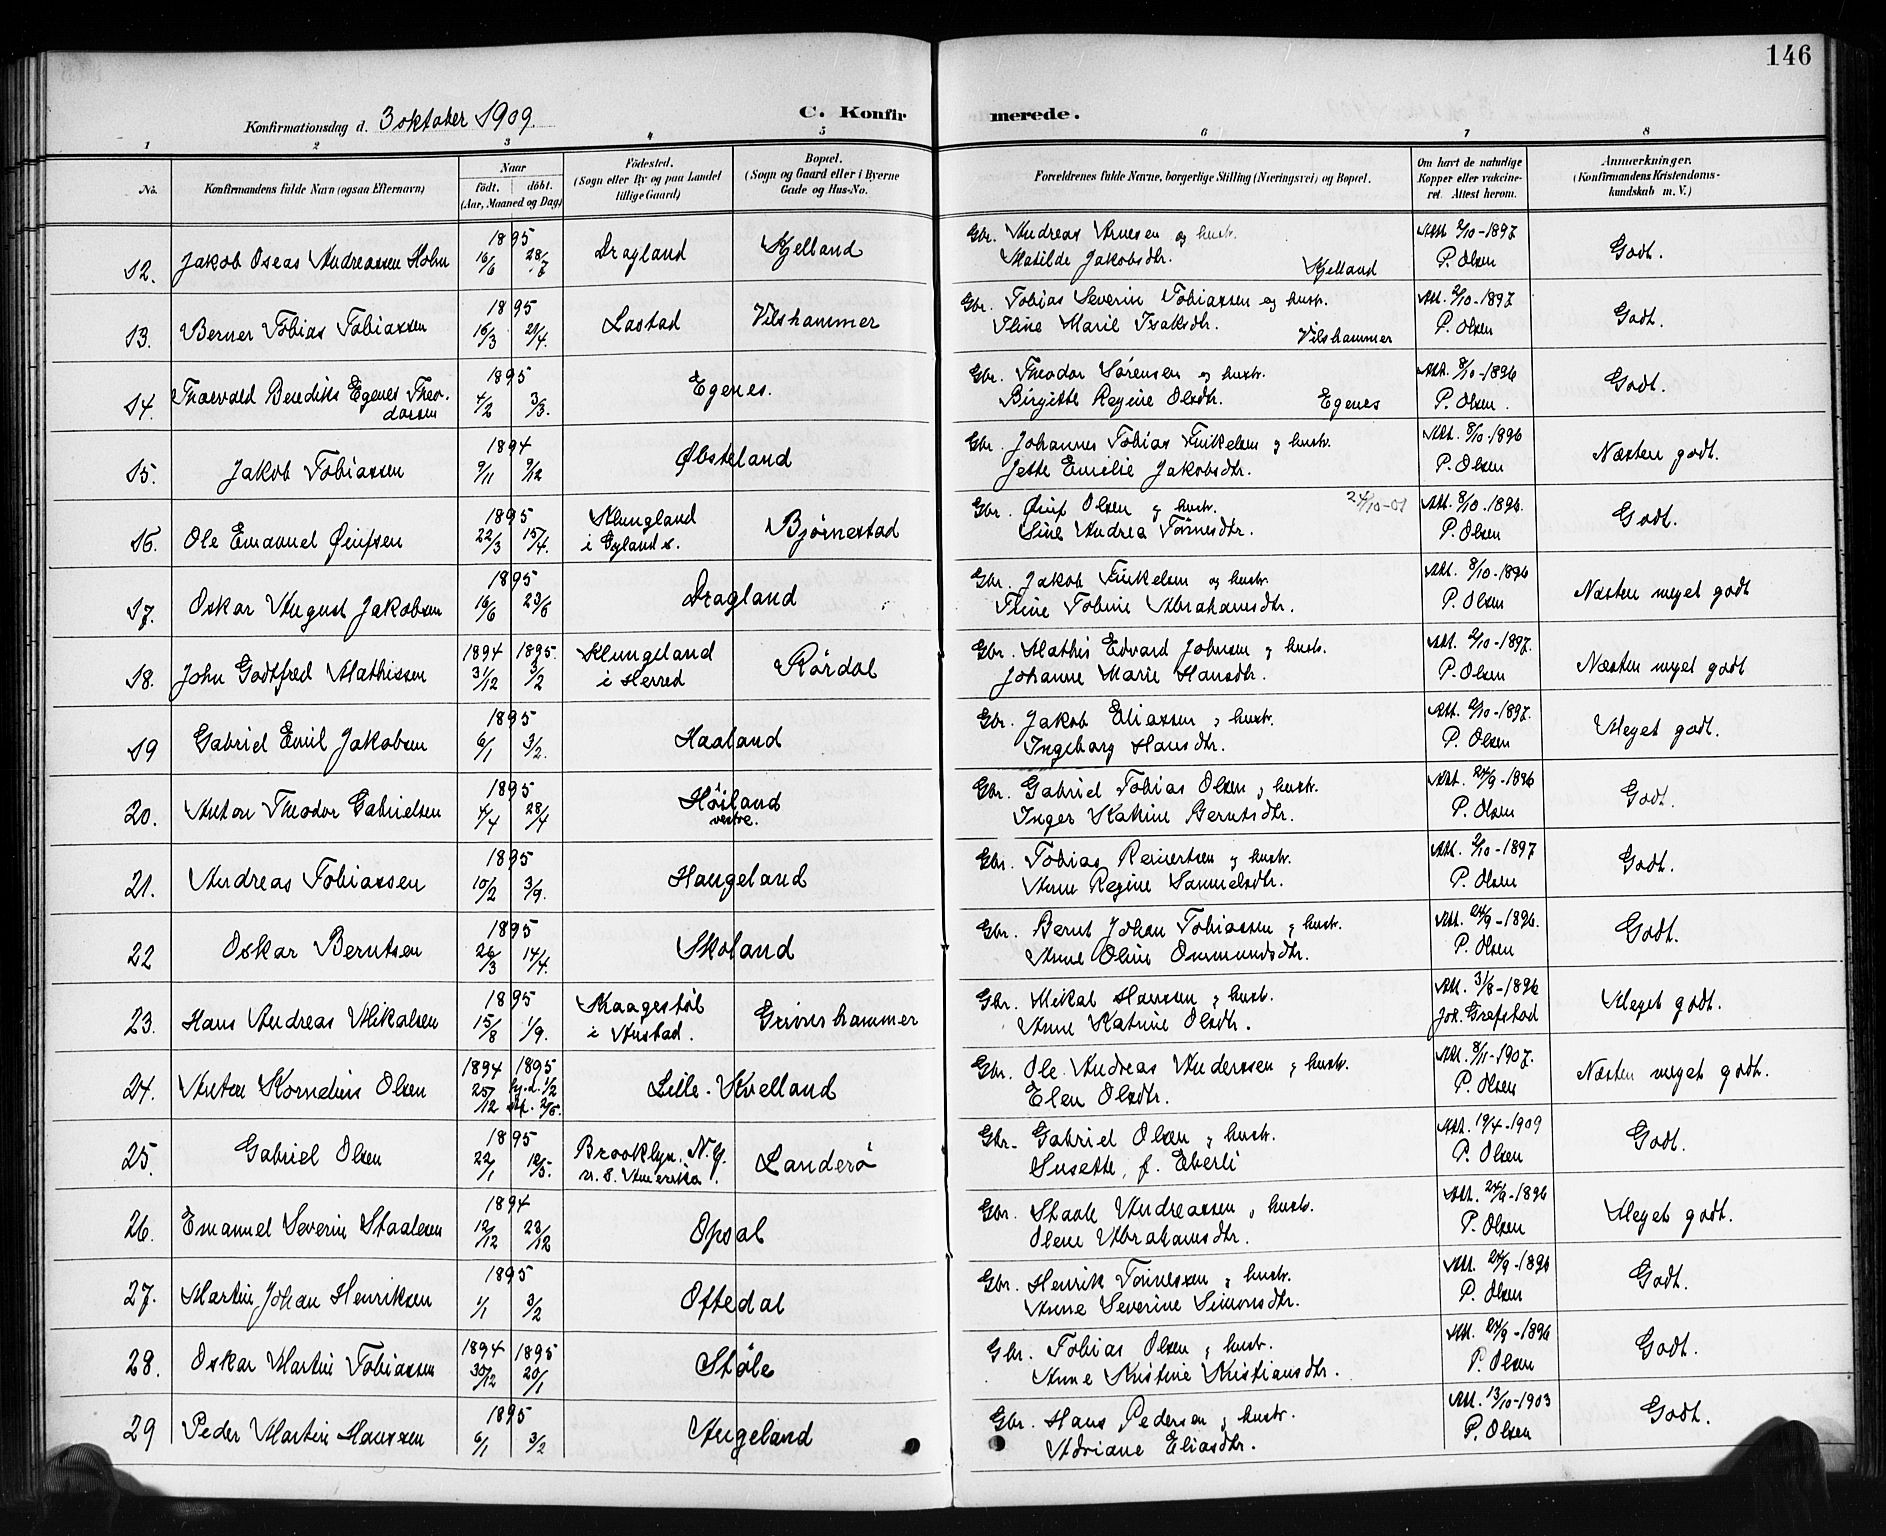 146
Konfirmationsdag d. 3 oktober 1909.
C. Konfirmerede.
1 2 3 4 5 6 7 8
No.
Konfirmandens fulde Navn (ogsaa Efternavn)
Naar
født. døbt.
(Aar, Maaned og Dag)
Fødested.
(Sogn eller By og paa Landet
tillige Gaard)
Bopæl.
(Sogn og Gaard eller i Byerne
Gade og Hus-No.
Forældrenes fulde Navne, borgerlige Stilling (Næringsvei) og Bopæl.
Om havt de naturlige
Kopper eller vakcine-
ret. Attest herom.
Anmærkninger.
(Konfirmandens Kristendoms-
kundskab m. V.)
12. Jakob Oseas Andreassen Holm 1895 16/6 28/7 Dragland Kjelland Gbr. Andreas Arnesen og hustr. Att. 2/10-1897 Godt.
Matilde Jakobsdtr. Kjelland P. Olsen
13. Berner Tobias Tobiassen 1895 16/3 29/4. Lastad Vilshammer Gbr. Tobias Severin Tobiassen og hustr. Att. 2/10-1897 Godt.
Tline Marie Isaksdtr. Vilshammer P. Olsen
14. Thorvald Bendiks Egenes Theo-
dorsen 1895 4/2 3/3. Egenes. Gbr. Theodor Sørensen og hustr. Att. 8/10-1896 Godt.
Birgitte Regine Olsdtr. Egenes P. Olsen.
15. Jakob Tobiassen 1894 9/11 9/12 Øbsteland Gbr. Johannes Tobias Tinkelsen og hustr. Att. 8/10-1896 Næsten godt.
Jette Emilie Jakobsdtr. P. Olsen
16. Ole Emanuel Øiufsen 1895 22/3 15/4. Klungland Bjørnestad Gbr. Øiuf Olsen og hustr. 24/10-01 Att. 8/10-1896. Godt.
i Gyland s. Sine Andrea Tønnesdtr. P. Olsen
17. Oskar August Jakobsen 1895 16/6 23/6 Dragland Gbr. Jakob Tinkelsen og hustr. Att. 8/10-1896 Næsten meget godt
Tline Tobine Abrahamsdtr. P. Olsen
18. John Godtfred Mathissen 1894 1895. 31/12 3/2 Klungeland Rørdal Gbr. Mathis Edvard Johnsen og hustr. Att. 2/10-1897. Næsten meget godt
i Herred Johanne Marie Hansdtr. P. Olsen
19 Gabriel Emil Jakobsen 1895 6/1 3/2. Haaland Gbr. Jakob Eliassen og hustr. Att. 2/10-1897. Meget godt.
Ingeborg Hansdtr. P. Olsen
20. Anton Theodor Gabrielsen 1895 4/4 28/4 Høiland Gbr. Gabriel Tobias Olsen og hustr. Att. 24/9-1896 Godt.
vestre. Inger Katrine Berntsdtr. P. Olsen
21. Andreas Tobiassen 1895 10/2 3/9. Haugeland Gbr. Tobias Reinertsen og hustr. Att. 2/10-1897 Godt.
Anne Regine Samuelsdtr. P. Olsen
22 Oskar Berntsen 1895 26/3 14/4. Skoland Gbr. Bernt Johan Tobiassen og hustr. Att. 24/9-1896. Godt.
Anne Oline Ommundsdtr. P. Olsen
23. Hans Andreas Mikalsen 1895 15/8 1/9. Skaagestøl Grimershammer Gbr. Mikal Hanssen og hustr. Att. 31/8-1896 Meget godt.
i Austad. Anne Katrine Olsdtr. Joh. Grefstad
24. Anton Kornelius Olsen 1894 1895 25/12 hj.d. 1/2 stf. 2/5. Lille-Kvelland Gbr. Ole Andreas Anderssen og hustr. Att. 8/11-1907. Næsten meget godt.
Elen Olsdtr. P. Olsen
25. Gabriel Olsen 1895 22/1 12/5. Brooklyn, N.Y. Landerø Gbr. Gabriel Olsen og hustr. Att. 19/4-1909 Godt.
n. s. Amerika. Susette, f. Eberli P. Olsen
26. Emanuel Severin Staalesen 1894 12/12 23/12 Opsal Gbr. Staale Andreassen og hustr. Att. 24/9-1896 Meget godt.
Olene Abrahamsdtr. P. Olsen
27. Martin Johan Henriksen 1895 1/1 3/2 Oftedal Gbr. Henrik Tønnessen og hustr. Att. 24/9-1896 Godt.
Anne Severine Simonsdtr. P. Olsen
28. Oskar Martin Tobiassen 1894 1895 30/12 20/1 Støle Gbr. Tobias Olsen og hustr. Att. 24/9-1896 Godt.
Anne Kristine Kristiansdtr. P. Olsen
29 Peder Martin Hanssen 1895 6/1 3/2 Augeland Gbr. Hans Pedersen og hustr. Att. 13/10-1903 Godt.
Adriane Eliasdtr. P. Olsen